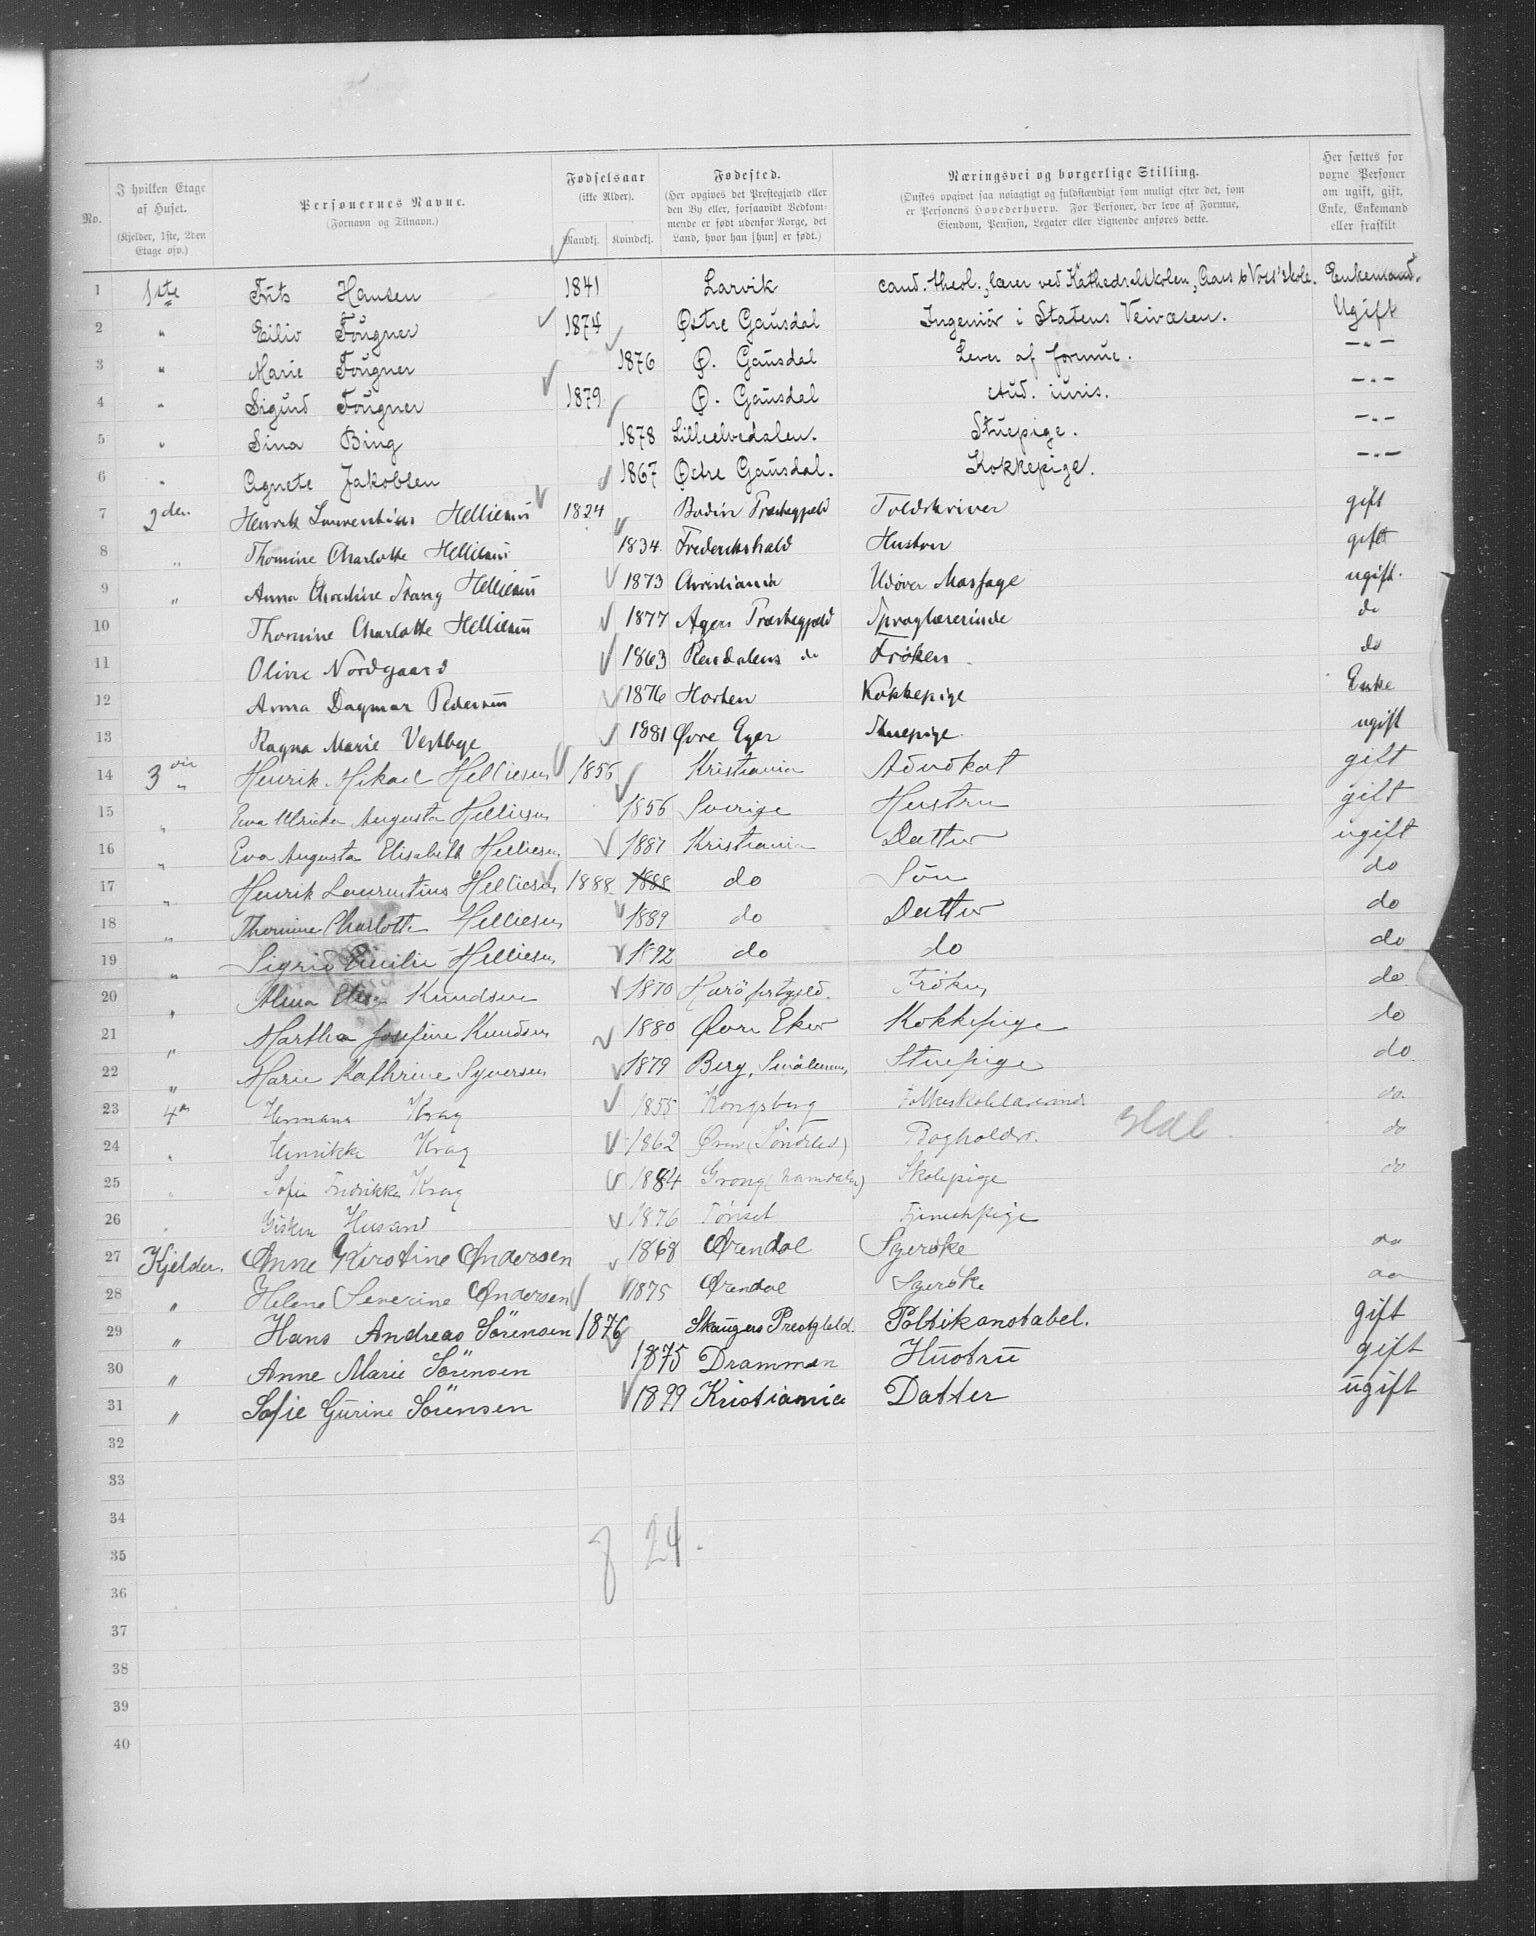 No. | I hvilken Etage af Huset. (Kjelder, 1ste, 2den Etage osv.) | Personernes Navne. (Fornavn og Tilnavn.) | Fødselsaar (ikke Alder). Mandkj. Kvindekj. | Fødested. (Her opgives det Præstegjæld eller den By eller, forsaavidt Vedkommende er født udenfor Norge, det Land, hvor han [hun] er født.) | Næringsvei og borgerlige Stilling. (Ønskes opgivet saa nøiagtigt og fuldstændigt som muligt efter det, som er Personens Hovederhverv. For Personer, der leve af Formue, Eiendom, Pension, Legater eller Lignende anføres dette.) | Her sættes for voxne Personer om ugift, gift, Enke, Enkemand eller fraskilt
1 1ste Frits Hansen 1841 Larvik cand. theol., lærer ved Kathedralskolen, Aars & Voss' skole. Enkemand.
2 " Eiliv Fougner 1874 Østre Gausdal Ingeniør i Statens Veivæsen. Ugift
3 " Marie Fougner 1876 Ø. Gausdal Lever af formue. -"-
4 " Sigurd Fougner 1879 Ø. Gausdal stud. iuris. -"-
5 " Sina Bing 1878 Lilleelvedalen. Stuepige. -"-
6 " Agnete Jakobsen 1867 Østre Gausdal. Kokkepige. -"-
7 2den Henrik Laurentius Helliesen 1824 Bodin Præstegjæld Toldskriver gift
8 " Thomine Charlotte Helliesen 1834 Frederikshald Hustru gift
9 " Anna Christine Stang Helliesen 1873 Christiania Udøver Massage ugift.
10 Thomine Charlotte Helliesen 1877 Agers Præstegjæld Sproglærerinde do
11 Oline Nordgaard 1863 Rendalens do Frøken do
12 Anna Dagmar Pedersen 1876 Horten Kokkepige Enke
13 Ragna Marie Vestbye 1881 Øvre Eger Stuepige. ugift
14 3die " Henrik Mikael Helliesen 1856 Kristiania Advokat gift
15 " Eva Ulrika Augusta Helliesen 1856 Sverige Hustru gift
16 " Eva Augusta Elisabeth Helliesen 1887 Kristiania Datter ugift
17 " Henrik Laurentius Helliesen 1888 1888 do Søn do
18 " Thomine Charlotte Helliesen 1889 do Datter do
19 " Sigrid Emilie Helliesen 1892 do do do
20 " Alma Knudsen 1870 Frøken do
21 " Martha Josefine Knudsen 1880 Øvre Eker Kokkepige do
22 " Marie Kathrine Syversen 1879 Berg, Smålenene Stuepige do
23 4de Hermana Krag 1855 Kongsberg Folkeskolelærerinde do
24 " Henrikke Krag 1862 (Søndeled) Bogholder. do
25 " Sofie Fredrikke Krag 1884 Grong (Namdalen) Skolepige do
26 " Gisken Husand 1876 Tønset Tjenestpige
27 Kjelder. Anne Kirstine Andersen 1868 Ørendal Syerske do
28 " Helene Severine Andersen 1875 Ørendal Syerske do
29 " Hans Andreas Sörensen 1876 Skaugers Prestgjeld. Politikonstabel. gift
30 " Anne Marie Sörensen 1875 Drammen Hustru gift
31 " Sofie Gurine Sörensen 1899 Kristiania Datter ugift
32
33
34
35 7 24.
36
37
38
39
40